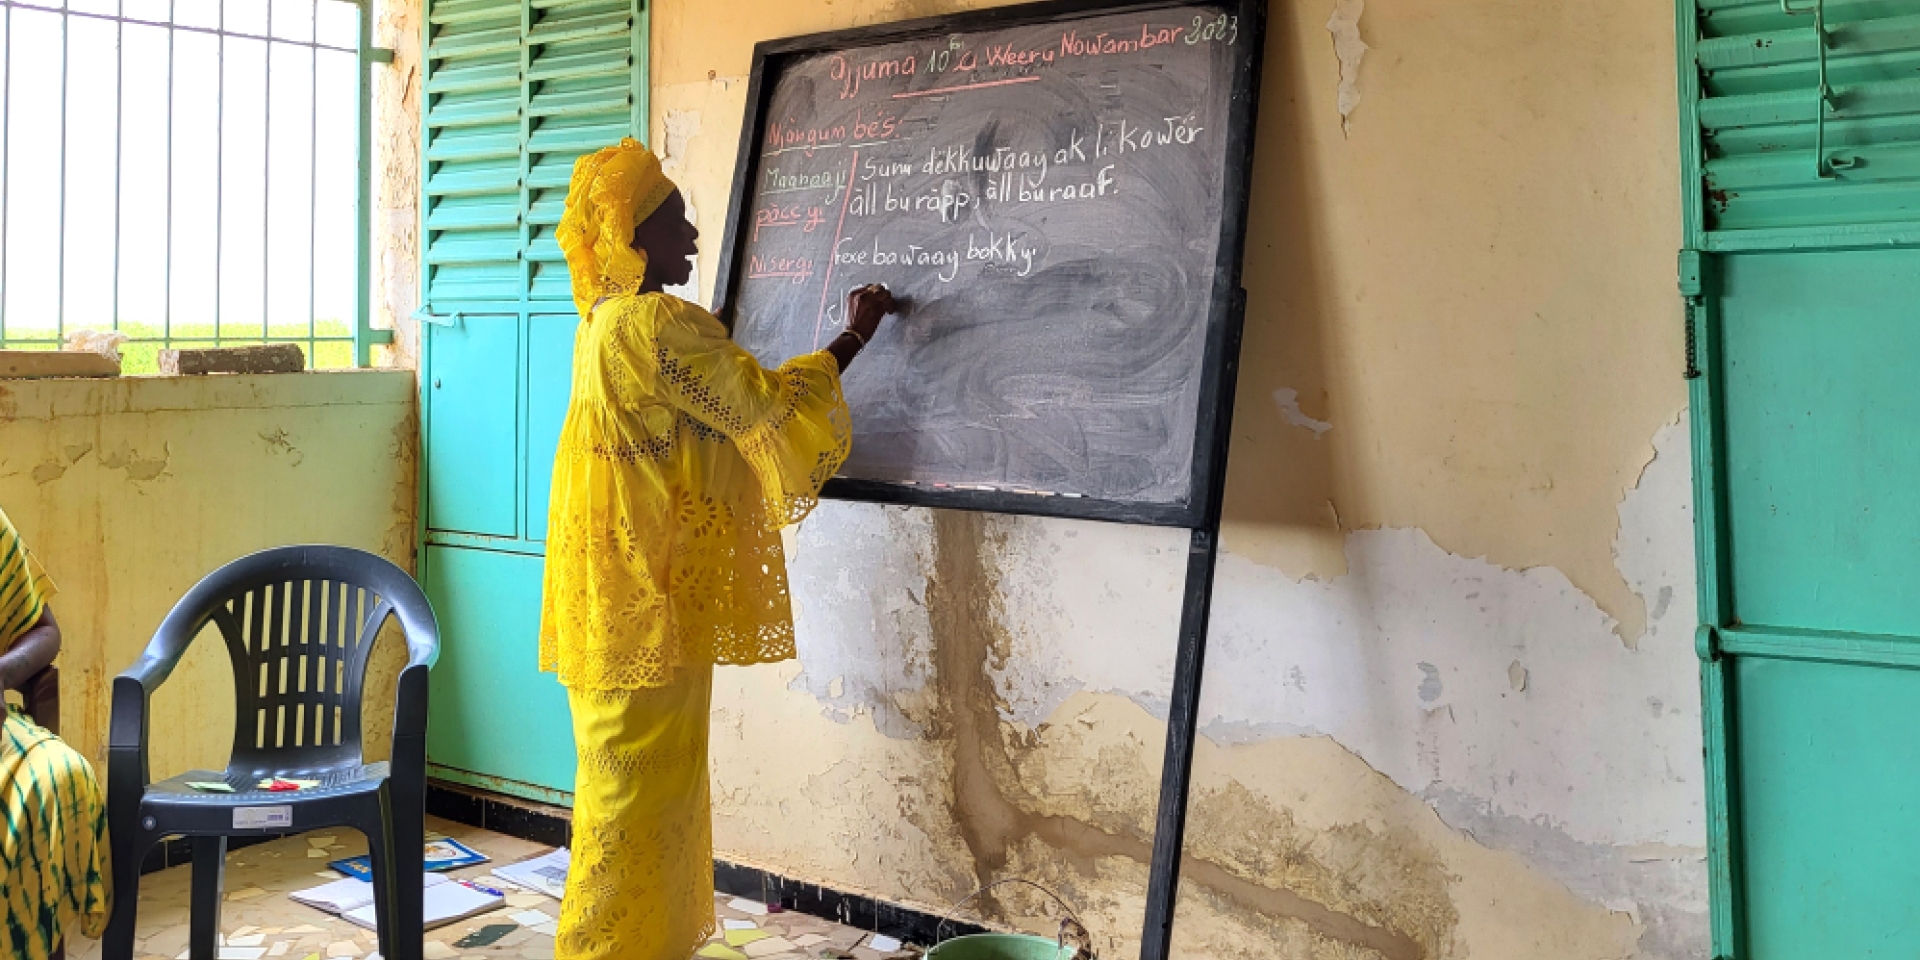 Àjjuma 10 Fan ci Weeru Nowambar 2023
Njàngum bés:
Maanaaji Sunu dëkkuwaay ak li ko wër
pàcc yi àll bu ràpp, àll bu raaf.
Nisergi Fexe bawaay bokkyi